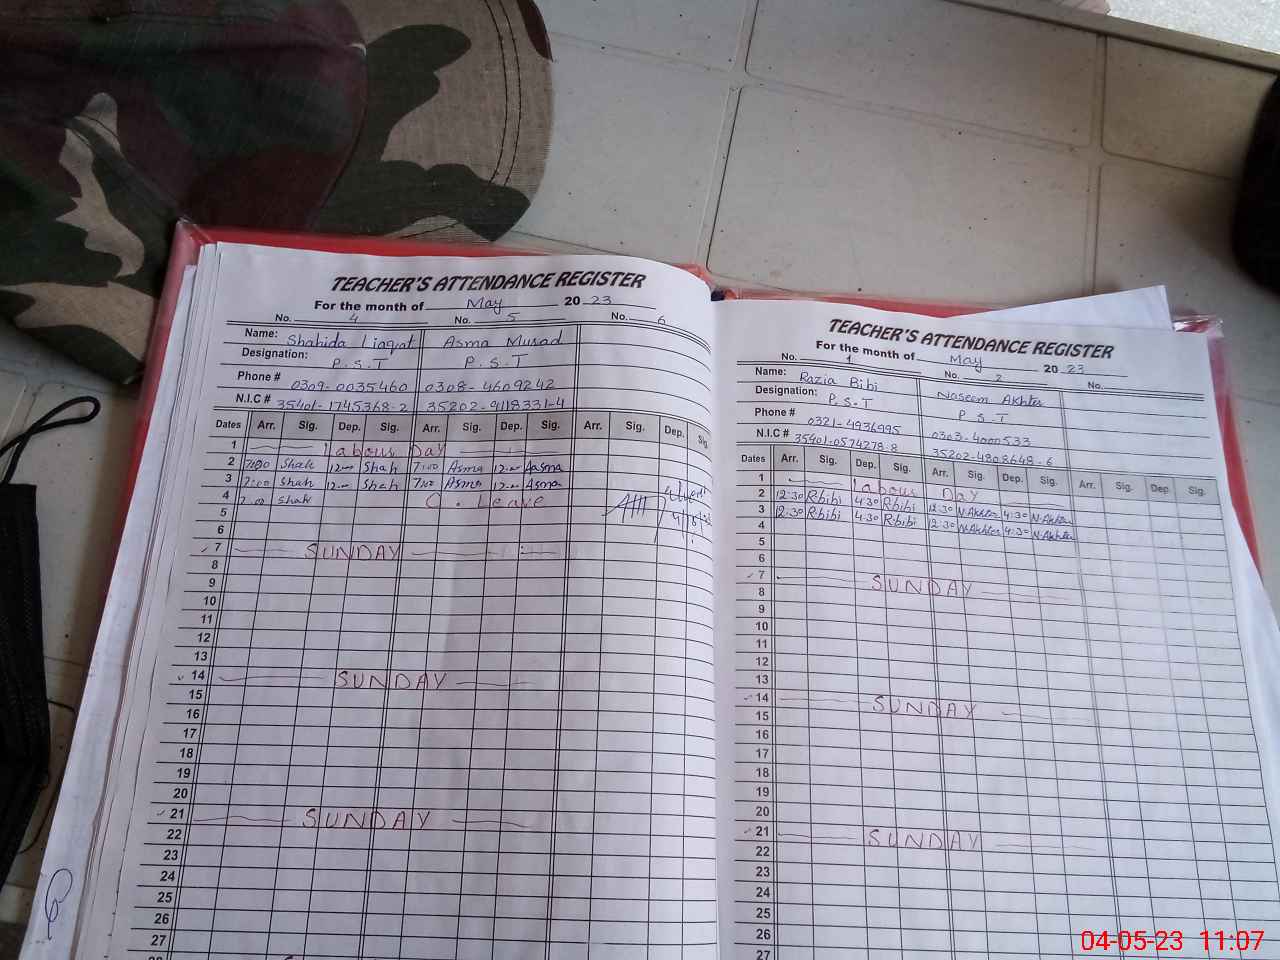 TEACHER'S ATTENDANCE REGISTER
For the month of May 2023
No. 4 No. 5 No. 6
Name: Shahida Liaqat Asma Murad
Designation: P.S.T P.S.T
Phone # 0309-0035460 0308-4609242
N.I.C # 35401-1745368-2 35202-9118331-4
Dates Arr. Sig. Dep. Sig. Arr. Sig. Dep. Sig. Arr. Sig. Dep. Sig.
1 Labour Day
2 7:00 Shah 12:00 Shah 7:00 Asma 12:00 Aasma
3 7:00 Shah 12:00 Shah 7:00 Asma 12:00 Asma
4 7:00 Shah C. Leave
5
6
7 SUNDAY
8
9
10
11
12
13
14 SUNDAY
15
16
17
18
19
20
21 SUNDAY
22
23
24
25
26
27
28
TEACHER'S ATTENDANCE REGISTER
For the month of May 2023
No. 1 No. 2 No.
Name: Razia Bibi Naseem Akhter
Designation: P.S.T P.S.T
Phone # 0321-4936995 0303-4000533
N.I.C # 35401-0574278-8 35202-4808648-6
Dates Arr. Sig. Dep. Sig. Arr. Sig. Dep. Sig. Arr. Sig. Dep. Sig.
1 Labour Day
2 12:30 R.bibi 4:30 R.bibi 12:30 N.Akhter 4:30 N.Akhter
3 12:30 R.bibi 4:30 R.bibi 12:30 N.Akhter 4:30 N.Akhter
4
5
6
7 SUNDAY
8
9
10
11
12
13
14 SUNDAY
15
16
17
18
19
20
21 SUNDAY
22
23
24
25
26
27
04-05-23 11:07